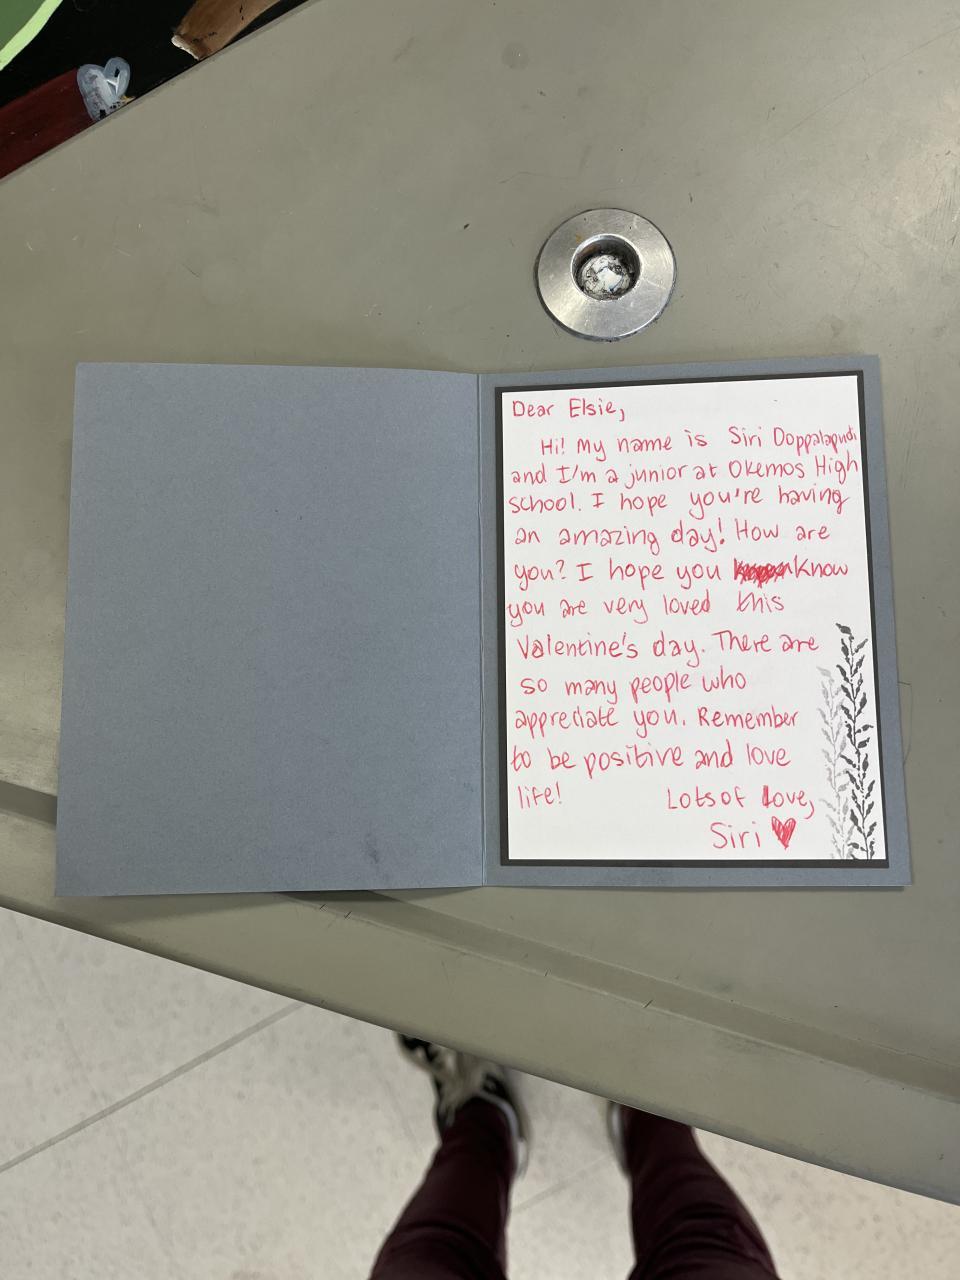 Dear Elsie,
Hi! My name is Siri Doppalapudi
and I'm a junior at Okemos High
school. I hope you're having
an amazing day! How are
you? I hope you know
you are very loved this
Valentine's day. There are
so many people who
appreciate you. Remember
to be positive and love
life! Lots of Love,
Siri ♥